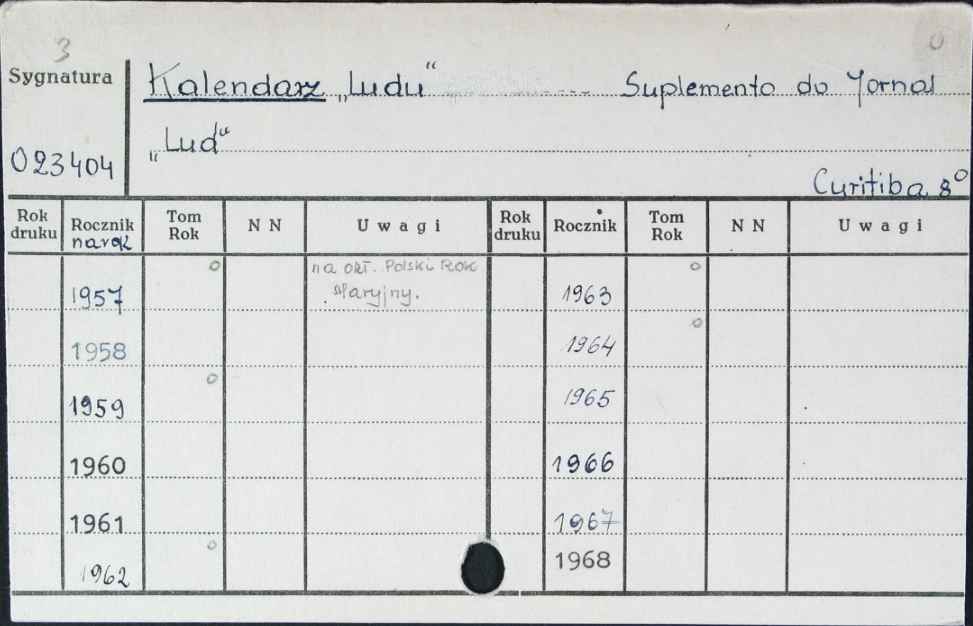 3
Sygnatura
Kalendarz „Ludu“ Suplemento do Jornal
„Lud“
023404
Curitiba 8°
Rok druku Rocznik na rok Tom Rok N N Uwagi Rok druku Rocznik Tom Rok N N Uwagi
1957 o na okł. Polski Rok Maryjny. 1963 o
1958 1964 o
1959 o 1965
1960 1966
1961 1967
1962 o 1968